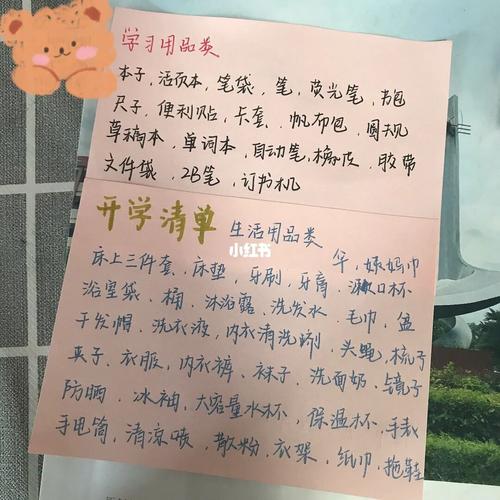 学习用品类
本子，活页本，笔袋，笔，荧光笔，书包
尺子，便利贴，卡套，帆布包，圆规
草稿本，单词本，自动笔，橡皮，胶带
文件袋，2B笔，订书机
开学清单 生活用品类
小红书
伞，姨妈巾
床上三件套、床垫，牙刷，牙膏，漱口杯
浴室袋、桶，沐浴露、洗发水，毛巾，盆
干发帽、洗衣液，内衣清洗剂，头绳，梳子
夹子、衣服，内衣裤、袜子，洗面奶，镜子
防晒，冰袖，大容量水杯，保温杯，手表
手电筒，清凉喷，散粉，衣架，纸巾，拖鞋